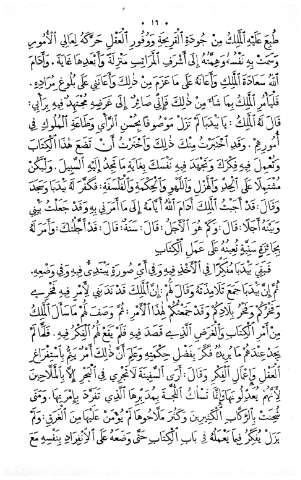 ١٦
طُبِعَ عَلَيْهِ الْمَلِكُ مِنْ جُودَةِ الْقَرِيحَةِ وَوُفُورِ الْعَقْلِ حَرَّكَهُ لِعَالِي الْأُمُورِ
وَسَمَتْ بِهِ نَفْسُهُ وَهِمَّتُهُ إِلَى أَشْرَفِ الْمَرَاتِبِ مَنْزِلَةً وَأَبْعَدِهَا غَايَةً . وَأَدَامَ
اللهُ سَعَادَةَ الْمَلِكِ وَأَعَانَهُ عَلَى مَا عَزَمَ مِنْ ذٰلِكَ وَأَعَانَنِي عَلَى بُلُوغِ مُرَادِهِ.
فَلْيَأْمُرِ الْمَلِكُ بِمَا شَاءَ مِنْ ذٰلِكَ فَإِنِّي صَائِرٌ إِلَى غَرَضِهِ مُجْتَهِدٌ فِيهِ بِرَأْيِي.
قَالَ لَهُ الْمَلِكُ : يَا بَيْدَبَا لَمْ تَزَلْ مَوْصُوفًا بِحُسْنِ الرَّأْيِ وَطَاعَةِ الْمُلُوكِ فِي
أُمُورِهِمْ . وَقَدِ اخْتَبَرْتُ مِنْكَ ذٰلِكَ وَاخْتَرْتُ أَنْ تَضَعَ هٰذَا الْكِتَابَ
وَتُعْمِلَ فِيهِ فِكْرَكَ وَتُجْهِدَ فِيهِ نَفْسَكَ بِغَايَةِ مَا تَجِدُ إِلَيْهِ السَّبِيلَ . وَلْيَكُنْ
مُشْتَمِلًا عَلَى الْجِدِّ وَالْهَزْلِ وَاللَّهْوِ وَالْحِكْمَةِ وَالْفَلْسَفَةِ . فَكَفَّرَ لَهُ بَيْدَبَا وَسَجَدَ
وَقَالَ : قَدْ أَجَبْتُ الْمَلِكَ أَدَامَ اللهُ أَيَّامَهُ إِلَى مَا أَمَرَنِي بِهِ وَقَدْ جَعَلْتُ بَيْنِي
وَبَيْنَهُ أَجَلًا . قَالَ : وَكَمْ هُوَ الْأَجَلُ . قَالَ : سَنَةٌ . قَالَ : قَدْ أَجَّلْتُكَ . وَأَمَرَ لَهُ
بِجَائِزَةٍ سَنِيَّةٍ تُعِينُهُ عَلَى عَمَلِ الْكِتَابِ
فَبَقِيَ بَيْدَبَا مُفَكِّرًا فِي الْأَخْذِ فِيهِ وَفِي أَيِّ صُورَةٍ يَبْتَدِئُ فِيهِ وَفِي وَضْعِهِ .
ثُمَّ إِنَّ بَيْدَبَا جَمَعَ تَلَامِيذَهُ وَقَالَ لَهُمْ : إِنَّ الْمَلِكَ قَدْ نَدَبَنِي لِأَمْرٍ فِيهِ فَخْرِي
وَفَخْرُكُمْ وَفَخْرُ بِلَادِكُمْ وَقَدْ جَمَعْتُكُمْ لِهٰذَا الْأَمْرِ . ثُمَّ وَصَفَ لَهُمْ مَا سَأَلَ الْمَلِكُ
مِنْ أَمْرِ الْكِتَابِ وَالْغَرَضِ الَّذِي قَصَدَ فِيهِ فَلَمْ يَقَعْ لَهُمُ الْفِكْرُ فِيهِ . فَلَمَّا لَمْ
يَجِدْ عِنْدَهُمْ مَا يُرِيدُهُ فَكَّرَ بِفَضْلِ حِكْمَتِهِ وَعَلِمَ أَنَّ ذٰلِكَ أَمْرٌ يَتِمُّ بِاسْتِفْرَاغِ
الْعَقْلِ وَإِعْمَالِ الْفِكْرِ وَقَالَ : أَرَى السَّفِينَةَ لَا تَجْرِي فِي الْبَحْرِ إِلَّا بِالْمَلَّاحِينَ
لِأَنَّهُمْ يُعَدِّلُونَهَا وَإِنَّمَا تَسْلُكُ اللُّجَّةَ بِمُدَبِّرِهَا الَّذِي تَفَرَّدَ بِإِمْرَتِهَا . وَمَتَى
شُحِنَتْ بِالرُّكَّابِ الْكَثِيرِينَ وَكَثُرَ مَلَّاحُوهَا لَمْ يُؤْمَنْ عَلَيْهَا مِنَ الْغَرَقِ . وَلَمْ
يَزَلْ يُفَكِّرُ فِيمَا يَعْمَلُهُ فِي بَابِ الْكِتَابِ حَتَّى وَضَعَهُ عَلَى الْاِنْفِرَادِ بِنَفْسِهِ مَعَ